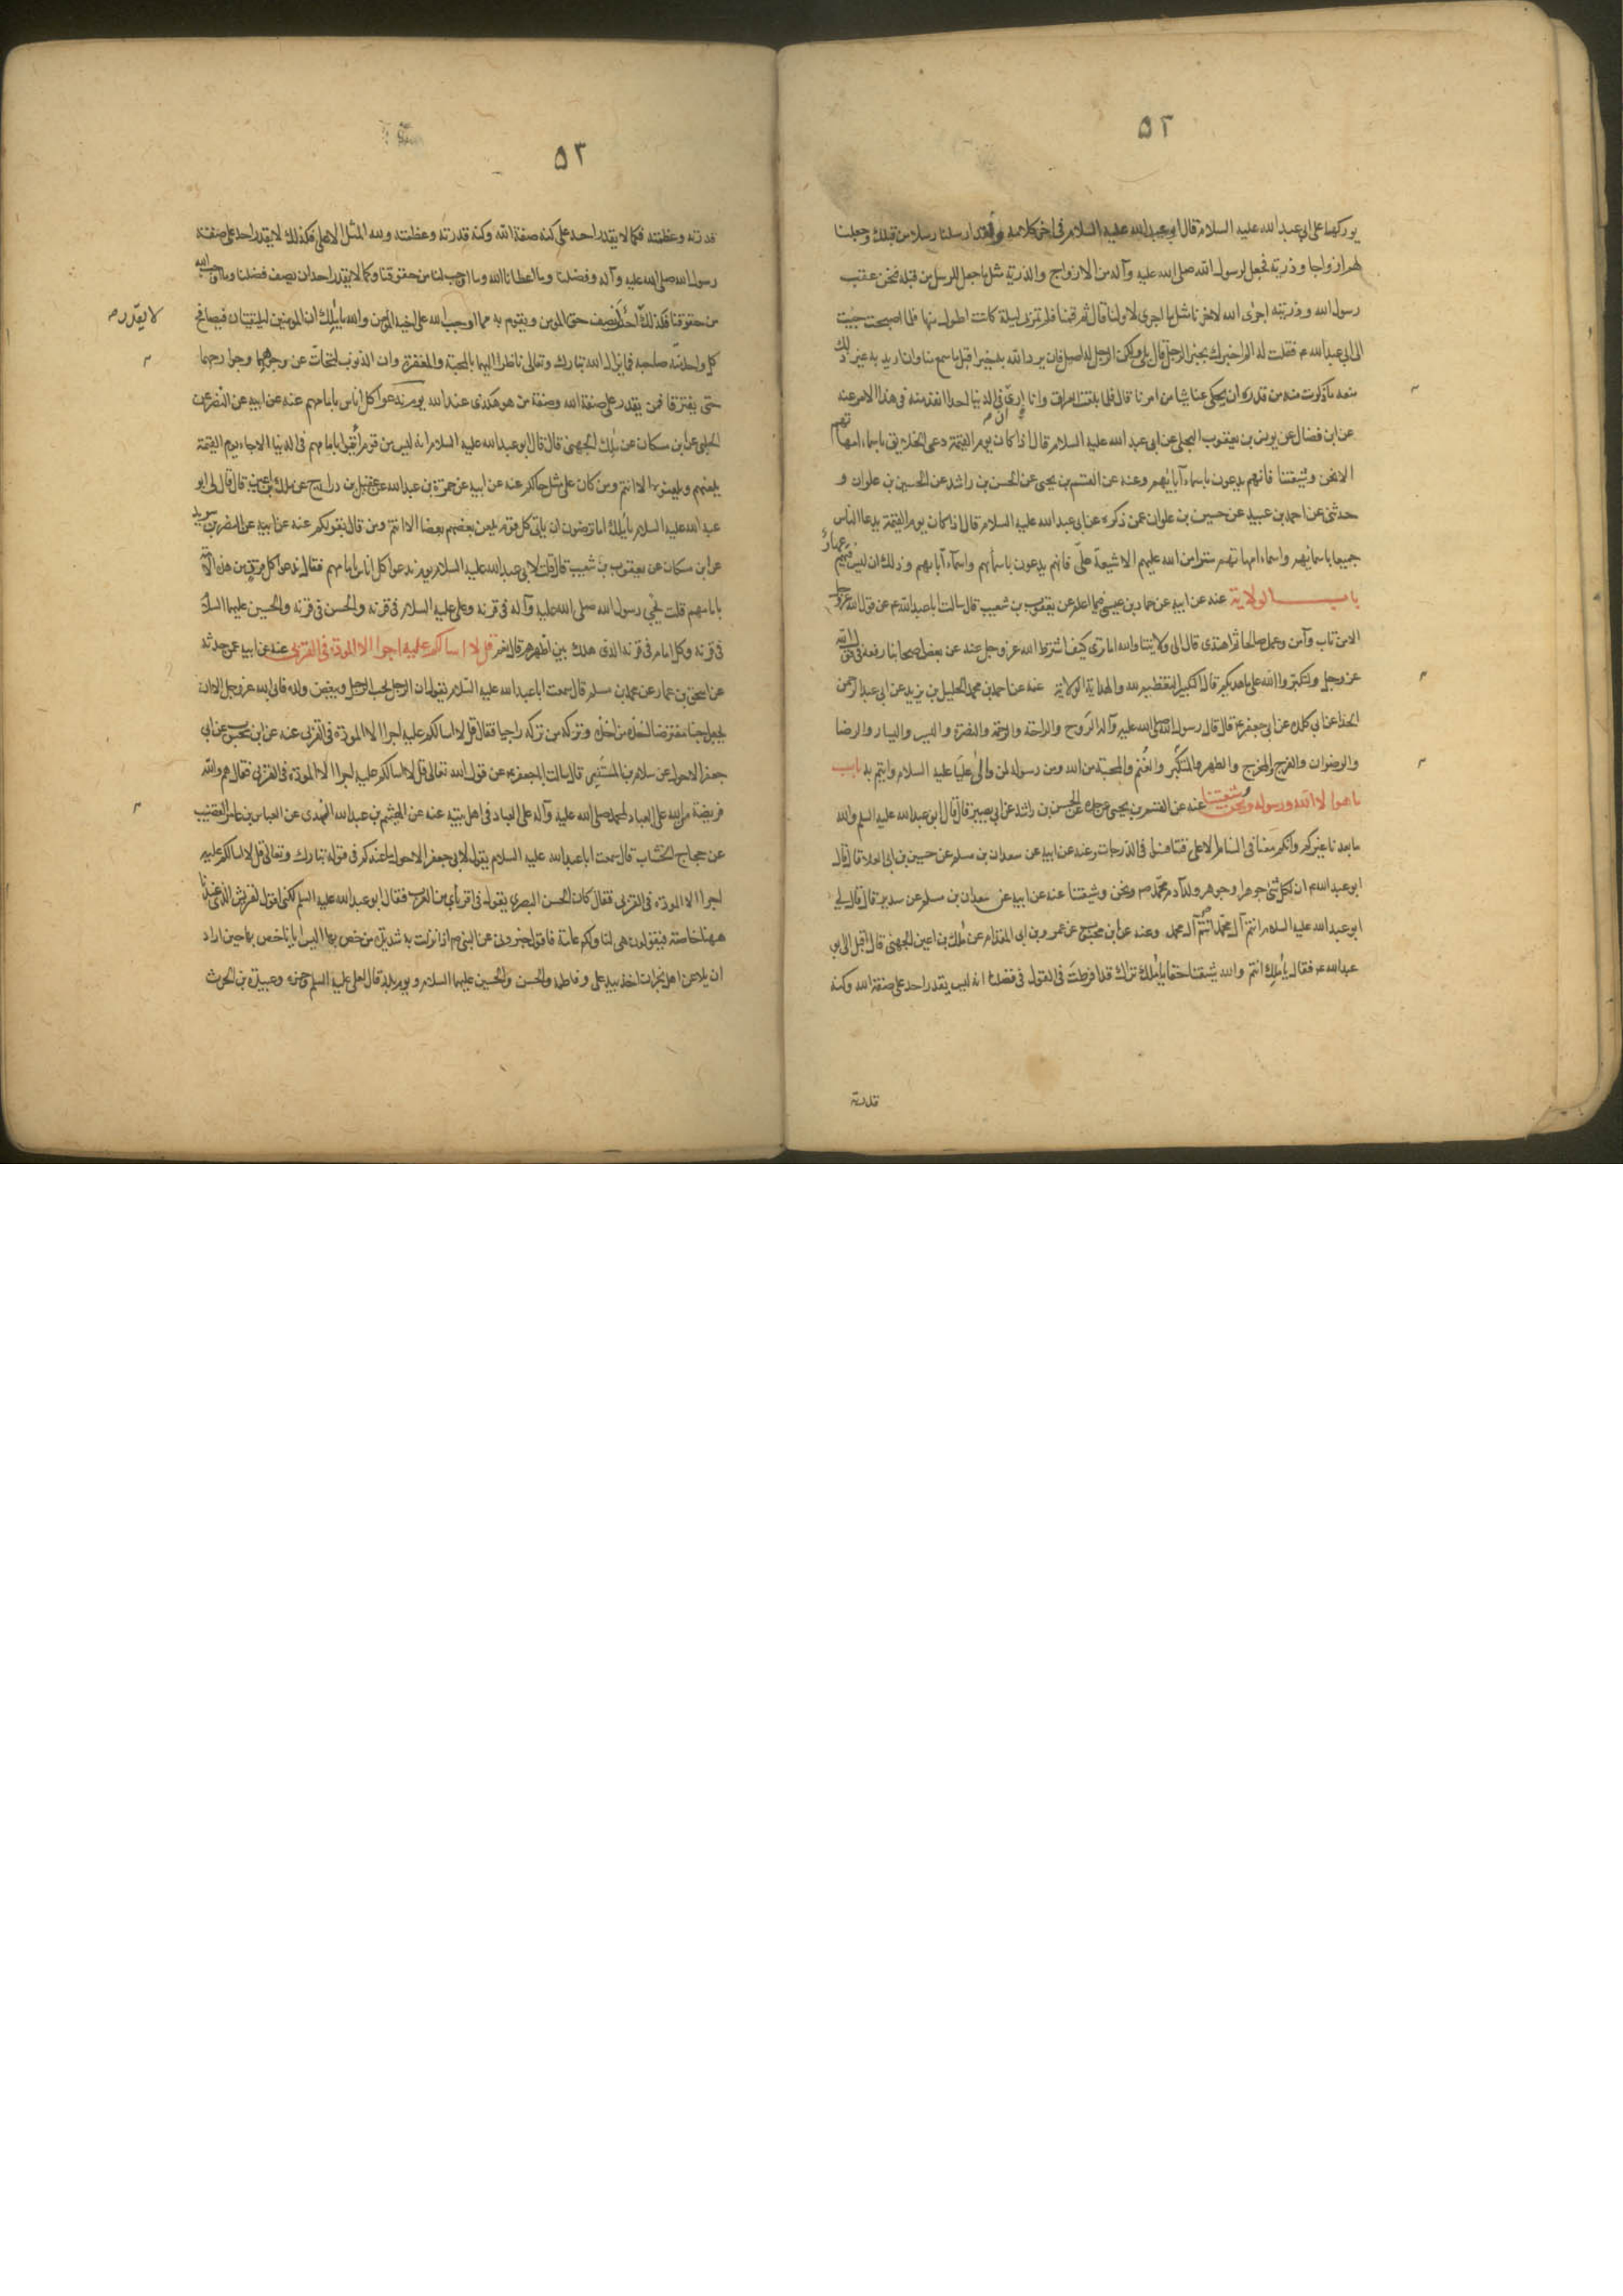 ٥٢
يوركها على ابي عبدالله عليه السلام قال ابو عبدالله عليه السلام في اخر كلامه ولقد ارسلنا رسلا من قبلك وجعلنا
لهم ازواجا وذرية فجعل لرسول الله صلى الله عليه وآله من الازواج والذرية مثل ما جعل للرسل من قبله فنحن عقب
رسول الله وذريته اجرى الله لاخرنا مثل ما اجرى لاولنا قال ثم قمنا فلم تمر بي ليلة كانت اطول منها فلما اصبحت جئت
الى ابي عبدالله ع فقلت له الم اخبرك بخبر الرجل قال بلى ولكن الرجل له اصل فان يرد الله به خيرا قبل ما سمع منا وان يرد به غير ذلك
منعه ما ذكرت منه من قدره ان يحكي عنا شيا من امرنا قال فلما بلغت العراق وانا ارى ان في الدنيا احدا انفذ منه في هذا الامر عنه
عن ابن فضال عن يونس بن يعقوب البجلي عن ابي عبد الله عليه السلام قال اذا كان يوم القيمة دعى الخلايق باسماء امهاتهم
الا نحن وشيعتنا فانهم يدعون باسماء آبائهم وعنه عن القسم بن يحيى عن الحسن بن راشد عن الحسين بن علوان و
حدثني عن احمد بن عبيد عن حسين بن علوان عمن ذكره عن ابي عبدالله عليه السلام قال اذا كان يوم القيمة يدعا الناس
جميعا باسمائهم واسماء امهاتهم سترا من الله عليهم الا شيعة علي فانهم يدعون باسمائهم واسماء آبائهم وذلك ان ليس فيهم عهار
باب الولاية عنه عن ابيه عن حماد بن عيسى فيما اعلم عن يعقوب بن شعيب قال سالت ابا عبدالله ع عن قول الله عز وجل
الا من تاب وآمن وعمل صالحا ثم اهتدى قال الى ولايتنا والله اما ترى كيف اشترط الله عز وجل عنه عن بعض اصحابنا رفعه في قول الله
عز وجل ولتكبروا الله على ما هديكم قال التكبير التعظيم لله والهداية الولاية عنه عن احمد بن محمد الخليل بن يزيد عن ابي عبدالرحمن
الحذا عن ابي كلدة عن ابي جعفر ع قال قال رسول الله صلى الله عليه وآله الروح والراحة والرحمة والنصرة واليسر واليسار والرضا
والرضوان والفرج والمخرج والظهر والتمكين والغنم والمحبة من الله ومن رسوله لمن والى عليا عليه السلام وايتم به باب
ما هو الا الله ورسوله ونحن وشيعتنا عنه عن القسم بن يحيى عن جده الحسن بن راشد عن ابي بصير قال قال ابو عبدالله عليه السلم والله
ما بعدنا غيركم وانكم معنا في السنام الاعلى فتنافسوا في الدرجات وعنه عن ابيه عن سعدان بن مسلم عن حسين بن ابي العلا قال قال
ابو عبدالله ع ان لكل شئ جوهرا وجوهر ولد آدم محمد ص ونحن وشيعتنا عنه عن ابيه عن سعدان بن مسلم عن سدير قال قال لي
ابو عبدالله عليه السلام انتم آل محمد انتم آل محمد وعنه عن ابن محبوب عن عمرو بن ابي المقدام عن مالك بن اعين الجهني قال اقبل الي ابو
عبدالله ع فقال يا مالك انتم والله شيعتنا حقا يا مالك تراك قد افرطت في القول في فضلنا انه ليس يقدر احد على صفة الله وكنه
قدرته
٥٣
قدرته وعظمته فكما لا يقدر احد على كنه صفة الله وكنه قدرته وعظمته ولله المثل الاعلى فكذلك لا يقدر احد على صفة
رسول الله صلى الله عليه وآله وفضلنا وما اعطانا الله وما اوجب لنا من حقوقنا وكما لا يقدر احد ان يصف فضلنا وما اوجب الله
من حقوقنا فكذلك لا يقدر احد ان يصف حق المومن ويقوم به مما اوجب الله على اخيه المومن والله يا مالك ان المومنين ليلتقيان فيصافح
كل واحد منه صاحبه فما يزال الله تبارك وتعالى ناظرا اليهما بالمحبة والمغفرة وان الذنوب لتحات عن وجوههما وجوارحهما
حتى يفترقا فمن يقدر على صفة الله وصفة من هو هكذى عند الله يوم ندعو كل اناس بامامهم عنه عن ابيه عن النضر عن
الحلبي عن ابن مسكان عن مالك الجهني قال قال ابو عبدالله عليه السلام انه ليس من قوم ائتموا بامامهم في الدنيا الا جاء يوم القيمة
يلعنهم ويلعنونه الا انتم ومن كان على مثل حالكم عنه عن ابيه عن حمزة بن عبدالله عن جميل بن دراج عن مالك بن اعين قال قال لي ابو
عبدالله عليه السلام يا مالك اما ترضون ان ياتي كل قوم يلعن بعضهم بعضا الا انتم ومن قال بقولكم عنه عن ابيه عن النضر بن سويد
عن ابن مسكان عن يعقوب بن شعيب قال قلت لابي عبدالله عليه السلام يوم ندعوا كل اناس بامامهم فقال ندعو كل قرن من هذه الامة
بامامهم قلت فيجي رسول الله صلى الله عليه وآله في قرنه وعلي عليه السلام في قرنه والحسن في قرنه والحسين عليهما السلام
في قرنه وكل امام في قرنه الذي هلك بين اظهرهم قال نعم قل لا اسالكم عليه اجرا الا المودة في القربى عنه عن ابيه عمن حدثه
عن اسحق بن عمار عن محمد بن مسلم قال سمعت ابا عبدالله عليه السلام يقول ان الرجل يحب الرجل ويبغض ولده فابى الله عز وجل الا ان
يجعل حبنا مفترضا اخذه من اخذه وتركه من تركه واجبا فقال قل لا اسالكم عليه اجرا الا المودة في القربى عنه عن ابن محبوب عن ابي
جعفر الاحول عن سلام بن المستنير قال سالت ابا جعفر ع عن قول الله تعالى قل لا اسالكم عليه اجرا الا المودة في القربى فقال هم والله
فريضة من الله على العباد لمحمد صلى الله عليه وآله على العباد في اهل بيته عنه عن الهيثم بن عبدالله النهدي عن العباس بن عامر القصير
عن حجاج الخشاب قال سمعت ابا عبدالله عليه السلام يقول لابي جعفر الاحول ما عندكم في قوله تبارك وتعالى قل لا اسالكم عليه
اجرا الا المودة في القربى فقال كان الحسن البصري يقول في اقربائي من العرب فقال ابو عبدالله عليه السلم لكني اقول لقريش الذين عندنا
ههنا خاصة فيقولون هي لنا ولكم عامة فاقول خبروني عن النبي ص اذا نزلت به شديدة من خص بها اليس ايانا خص بها حين اراد
ان يلاعن اهل نجران اخذ بيد علي وفاطمة والحسن والحسين عليهما السلام ويوم بدر قال لعلي عليه السلم وحمزة وعبيدة بن الحرث
لا يقدر ص